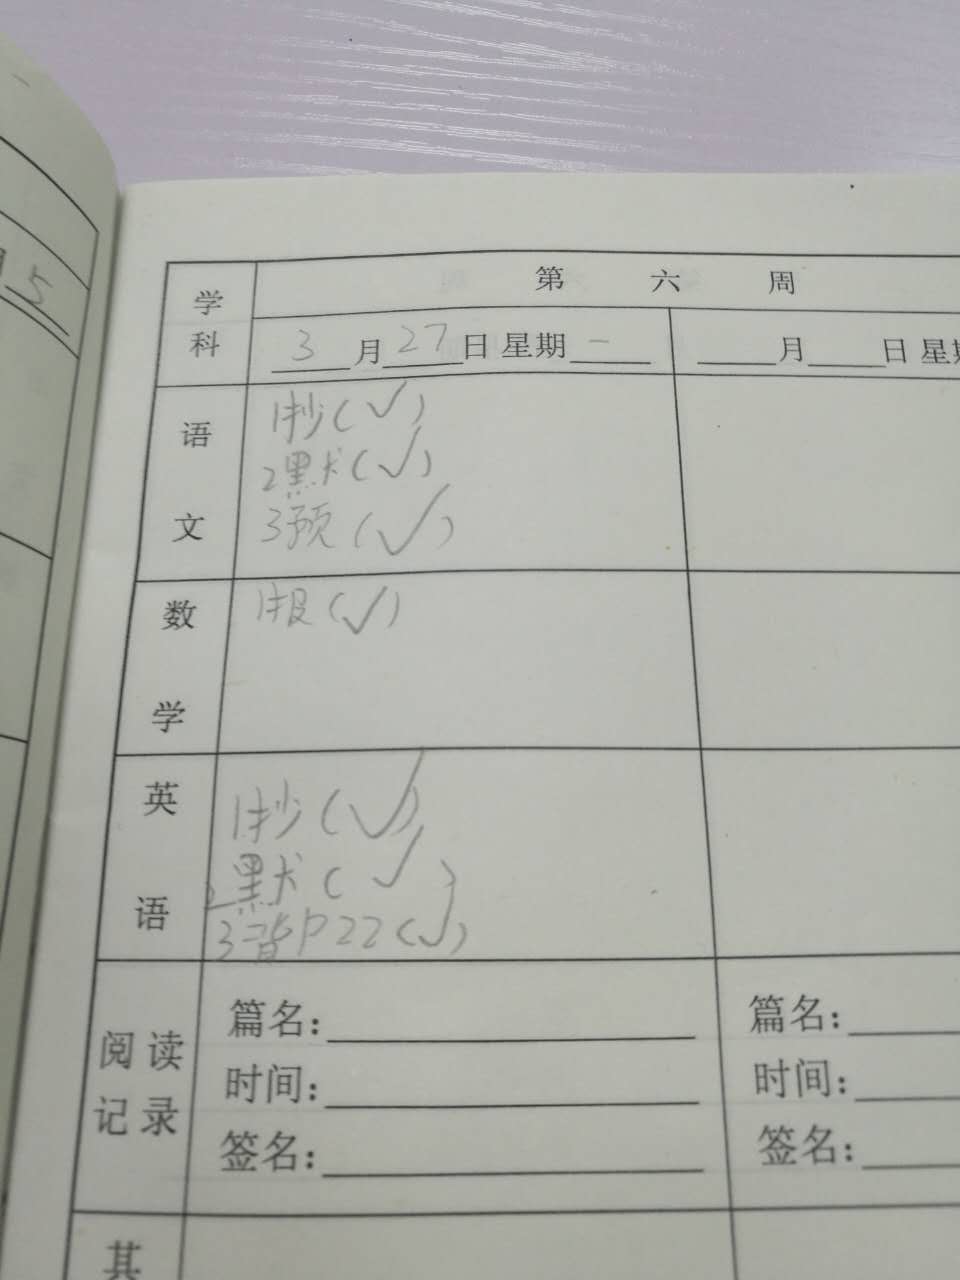 5
学科
第 六 周
3月27日 星期一
月 日 星期
语文
1抄(✓)
2默(✓)
3预(✓)
数学
1报(✓)
英语
1抄(✓)
2默(✓)
3背P22(✓)
阅读记录
篇名:
时间:
签名:
篇名:
时间:
签名:
其